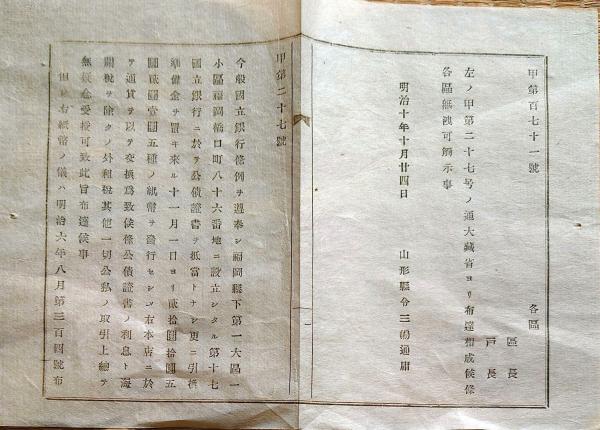 甲第百七十一號
各區
區長
戸長
左ノ甲第二十七号ノ通大藏省ヨリ布達相成候條
各區無洩可觸示事
明治十年十月廿四日
山形縣令三島通庸
甲第二十七號
今般國立銀行條例ヲ遵奉シ福岡縣下第一大區一
小區福岡橋口町八十六番地ニ設立シタル第十七
國立銀行ニ於テ公債證書ヲ抵當トナシ更ニ引換
準備金ヲ置キ來ル十一月一日ヨリ貳拾圓拾圓五
圓貳圓壹圓五種ノ紙幣ヲ發行セシメ右本店ニ於
テ通貨ヲ以テ交換爲致候條公債證書ノ利息ト海
關稅ヲ除クノ外租稅其他一切公私ノ取引上總テ
無疑念受授可致此旨布達候事
但シ右紙幣ノ儀ハ明治六年八月第三百四號布